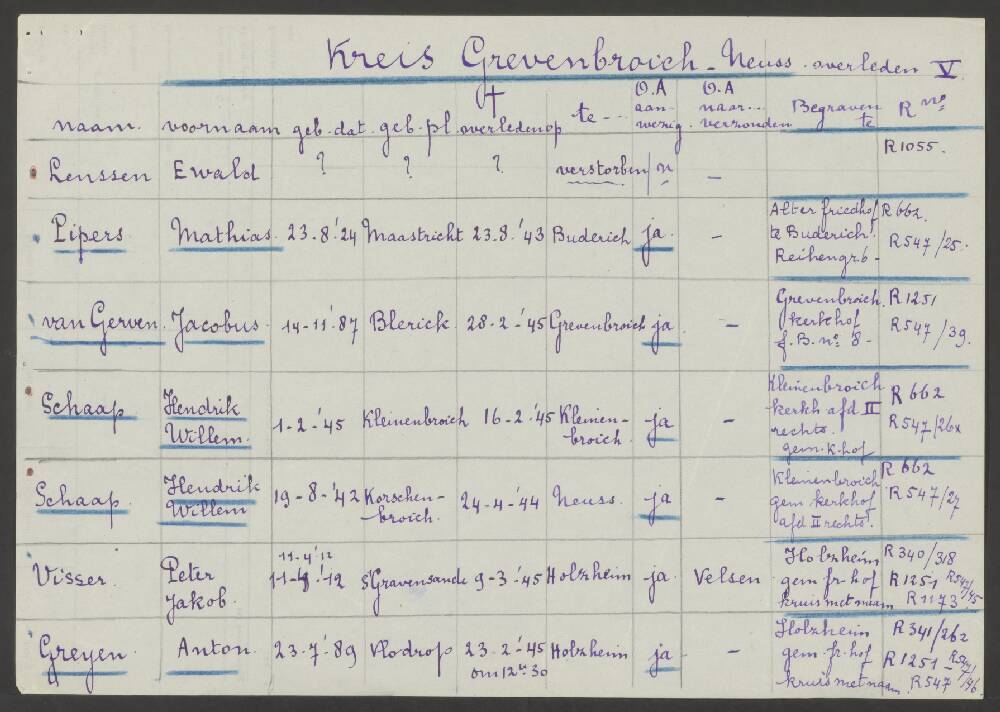 Kreis Grevenbroich - Neuss. overleden V
naam. voornaam geb. dat. geb. pl. † overleden op te --- O.A aanwezig O.A naar... verzonden Begraven te R nº
Lenssen Ewald ? ? ? verstorben / n — R1055.
Pipers Mathias 23.8.'24 Maastricht 23.8.'43 Buderich ja — Alter friedhof R 662.
te Buderich! R547/25.
Reihengrb -
van Gerven Jacobus 14-11-'87 Blerick 28-2-'45 Grevenbroich ja — Grevenbroich R1251
kerkhof R547/39.
f. B. nº 8 -
Schaap Hendrik 1-2-'45 Kleinenbroich 16-2-'45 Kleinen- ja — Kleinenbroich R 662
Willem. broich. kerkh afd II R547/26x
rechts.
gem. k. hof
Schaap. Hendrik 19-8-'42 Korschen- 24-4-'44 Neuss. ja — Kleinenbroich R 662
Willem broich. gem. kerkhof R547/27
afd II rechts!
11-4-'12
Visser. Peter 's Gravensande 9-3-'45 Holzheim ja. Velsen Holzheim R340/318
Jakob. gem. fr. hof R1251
kruis met naam R1173.
Greyen Anton. 23-7-'89 Vlodrop 23-2-'45 Holzheim ja — Holzheim R341/262
om 12 u 30 gem. fr. hof R1251
kruis met naam. R547/46